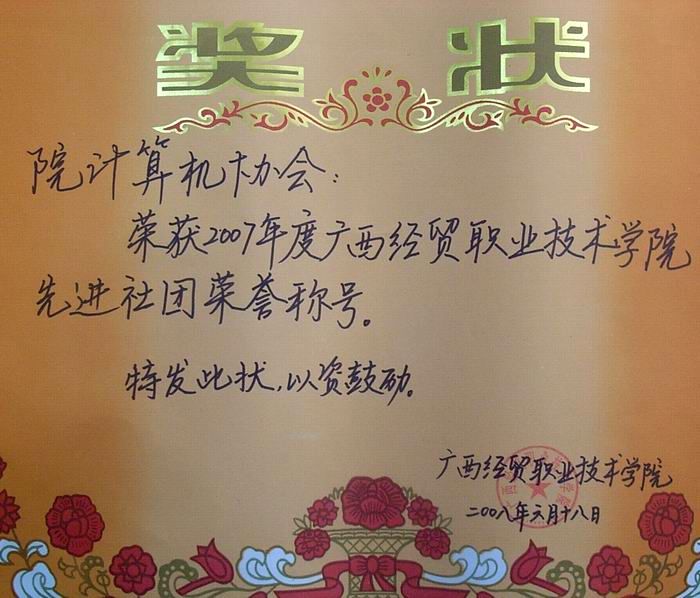 奖 状
院计算机协会：
荣获2007年度广西经贸职业技术学院
先进社团荣誉称号。
特发此状，以资鼓励。
广西经贸职业技术学院
二00八年六月十八日